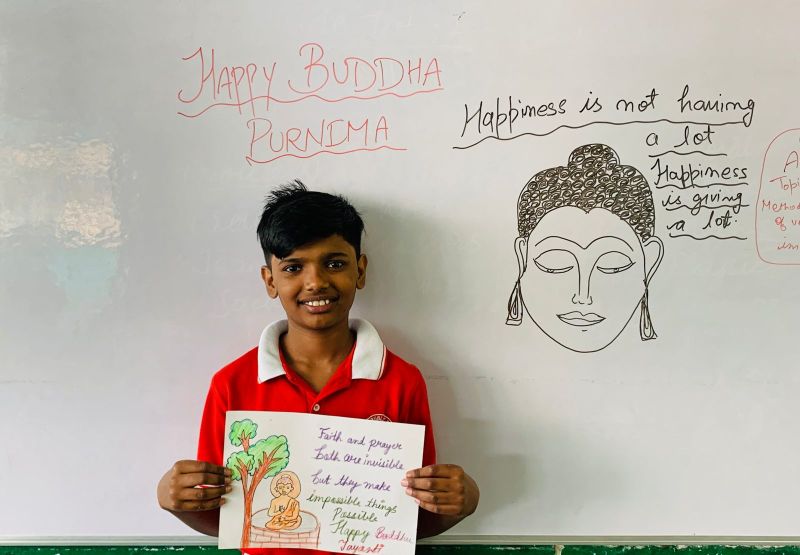 HAPPY BUDDHA
PURNIMA
Happiness is not having
a lot
Happiness
is giving
a lot.
Topi
Method
of v
im
Faith and prayer
both are invisible
but they make
impossible things
Possible
Happy Buddha
Jayanti